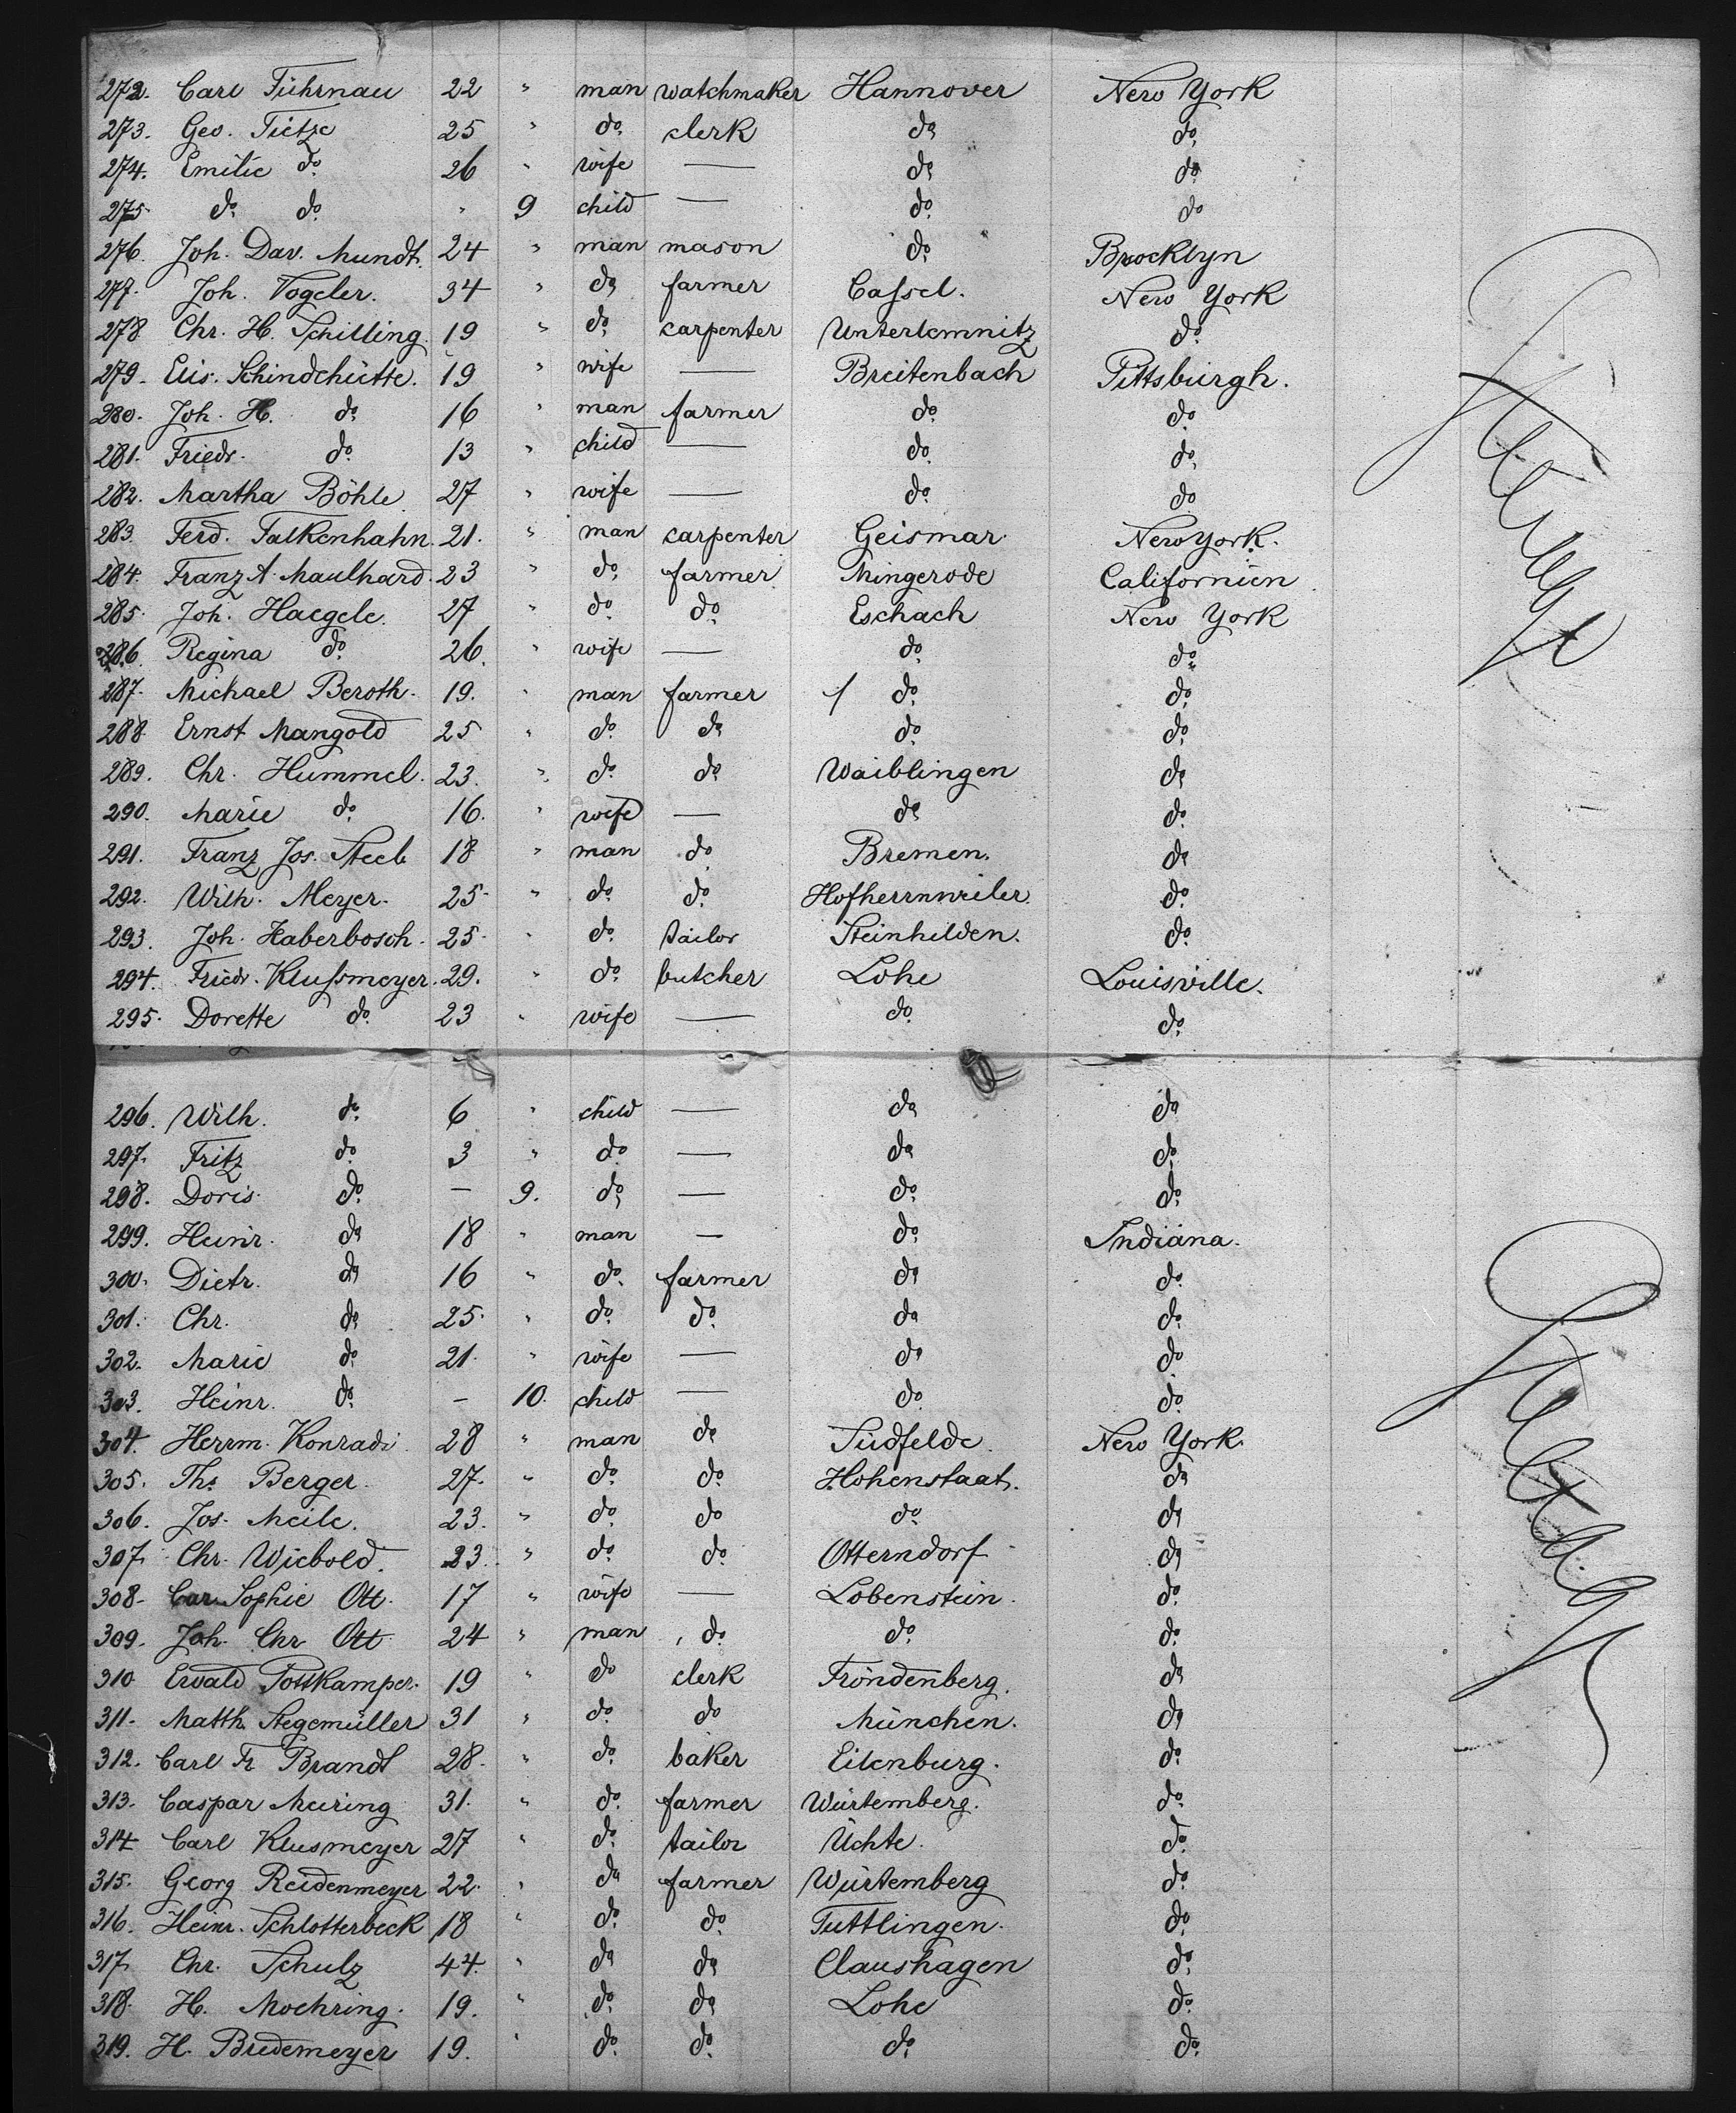 272. Carl Führnau 22 " man watchmaker Hannover New York
273. Geo. Tietze 25 " do. clerk do. do.
274. Emilie do. 26 " wife — do. do.
275. do. do. " 9 child — do. do.
276. Joh. Dav. Mundt. 24 " man mason do. Brocklyn
277. Joh. Vogeler. 34 " do. farmer Cassel. New York
278. Chr. H. Schilling. 19 " do. carpenter Unterlemnitz do.
279. Elis. Schindehütte. 19 " wife — Breitenbach Pittsburgh.
280. Joh. H. do. 16 " man farmer do. do.
281. Friedr. do. 13 " child — do. do.
282. Martha Böhle 27 " wife — do. do.
283. Ferd. Falkenhahn. 21. " man carpenter Geismar. New York.
284. Franz A. Maulhard. 23 " do. farmer Mingerode Californien
285. Joh. Haegele. 27 " do. do. Eschach New York
286. Regina do. 26. " wife — do. do.
287. Michael Beroth. 19. " man farmer do. do.
288. Ernst Mangold 25 " do. do. do. do.
289. Chr. Hummel. 23. " do. do. Waiblingen do.
290. Marie do. 16. " wife — do. do.
291. Franz Jos. Steeb 18 " man do. Bremen. do.
292. Wilh. Meyer. 25. " do. do. Hofherrnweiler. do.
293. Joh. Haberbosch. 25. " do. tailor Steinhilden. do.
294. Friedr. Klussmeyer. 29. " do. butcher Lohe Louisville.
295. Dorette do. 23 " wife — do. do.
296. Wilh. do. 6 " child — do. do.
297. Fritz do. 3 " do. — do. do.
298. Doris. do. — 9. do. — do. do.
299. Heinr. do. 18 " man — do. Indiana.
300. Dietr. do. 16 " do. farmer do. do.
301. Chr. do. 25. " do. do. do. do.
302. Marie do. 21. " wife — do. do.
303. Heinr. do. — 10. child — do. do.
304. Herrm. Konradi 28 " man do. Südfelde. New York
305. Ths. Berger. 27. " do. do. Hohenstaat. do.
306. Jos. Meile. 23. " do. do. do. do.
307. Chr. Wiebold. 23. " do. do. Otterndorf do.
308. Car. Sophie Ott. 17 " wife — Lobenstein. do.
309. Joh. Chr Ott 24 " man do. do. do.
310 Ewald Pottkamper. 19 " do clerk Fröndenberg. do.
311. Matth. Stegemüller 31 " do. do München. do.
312. Carl Fr Brandt 28. " do. baker Eilenburg. do.
313. Caspar Meiring 31. " do. farmer Würtemberg. do.
314 Carl Klusmeyer 27 " do. tailor Üchte. do.
315. Georg Reidenmeyer 22. " do. farmer Würtemberg do.
316. Heinr. Schlotterbeck 18 " do. do. Tuttlingen. do.
317. Chr. Schulz 44. " do. do. Claushagen do.
318. H. Moehring. 19. " do. do. Lohe do.
319. H. Bredemeyer 19. " do. do. do. do.